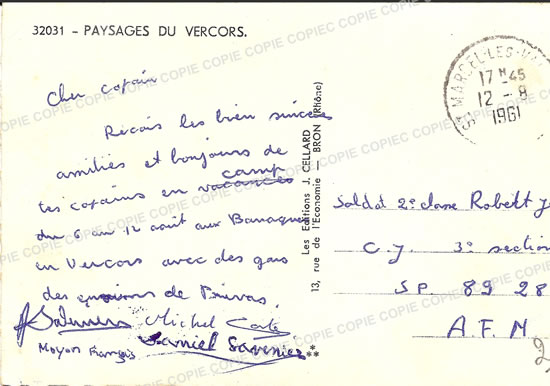 32031 - PAYSAGES DU VERCORS.
Cher copain
Reçois les bien sincères
amitiés et bonjours de
camp
tes copains en vacances
du 6 au 12 août aux Baraques
en Vercors avec des gas
des environs de Privas.
Michel
Moyon François
Daniel Savenier
Les Editions J. CELLARD
13, rue de l'Economie — BRON (Rhône)
ST MARCEL-LES-
17 H 45
12 - 8
1961
Soldat 2e classe Robert J
C.J 3e section
SP. 89 28
A.F.N
COPIE COPIE COPIE COPIE COPIE COPIE COPIE COPIE